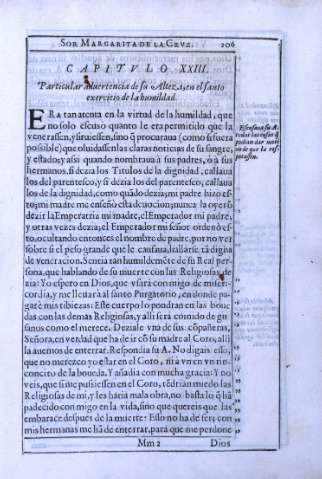 SOR MARGARITA DE LA CRVZ. 206
CAPITVLO XXIII.
Particular aduertencia de su Alteza, en el santo
exercicio de la humildad.
ERA tan atenta en la virtud de la humildad, que
no solo escuso quanto le era permitido que la
venerassen, y siruiessen, sino q̃ procuraua (como si fuera
possible) que oluidassen las claras noticias de su sangre,
y estado; y assi quando nombraua à sus padres, ò à sus
hermanos, si dezia los Titulos de la dignidad, callaua
los del parentesco, y si dezia los del parentesco, callaua
los de la dignidad, como quãdo dezia; mi padre hizo esto;
mi madre me enseñò esta deuocion; nunca la oyerõ
dezir la Emperatriz mi madre, el Emperador mi padre,
y otras vezes dezia; el Emperador mi señor ordenò esto,
ocultando entonces el nombre de padre, por no ver
sobre si el peso grande que le causaua, hallarse tã digna
de veneracion. Sentia tan humildemẽte de su Real persona,
que hablando de su muerte con las Religiosas, dezia:
Yo espero en Dios, que vsarà conmigo de misericordia,
y me lleuarà al santo Purgatorio, en donde pagarè
mis tibiezas: Este cuerpo lo pondran en las bouedas
con las demas Religiosas, y alli serà comido de gusanos
como el merece. Deziale vna de sus cõpañeras,
Señora, en verdad que ha de ir cõ su madre al Coro, alli
la auemos de enterrar. Respondia su A. No digais esso,
que no merezco yo estar en el Coro, ni a vn en vn rinconcito
de la boueda. Y añadia con mucha gracia: Y no
veis, que si me pusiessen en el Coro, tẽdrian miedo las
Religiosas de mi, y les haria mala obra, no basta lo q̃ hã
padecido conmigo en la vida, sino que quereis que las
embarace despues de la muerte: Esso no ha de ser; con
mis hermanas me hã de enterrar, para que me perdone
Mm 2 Dios
Escusaua su Alteza